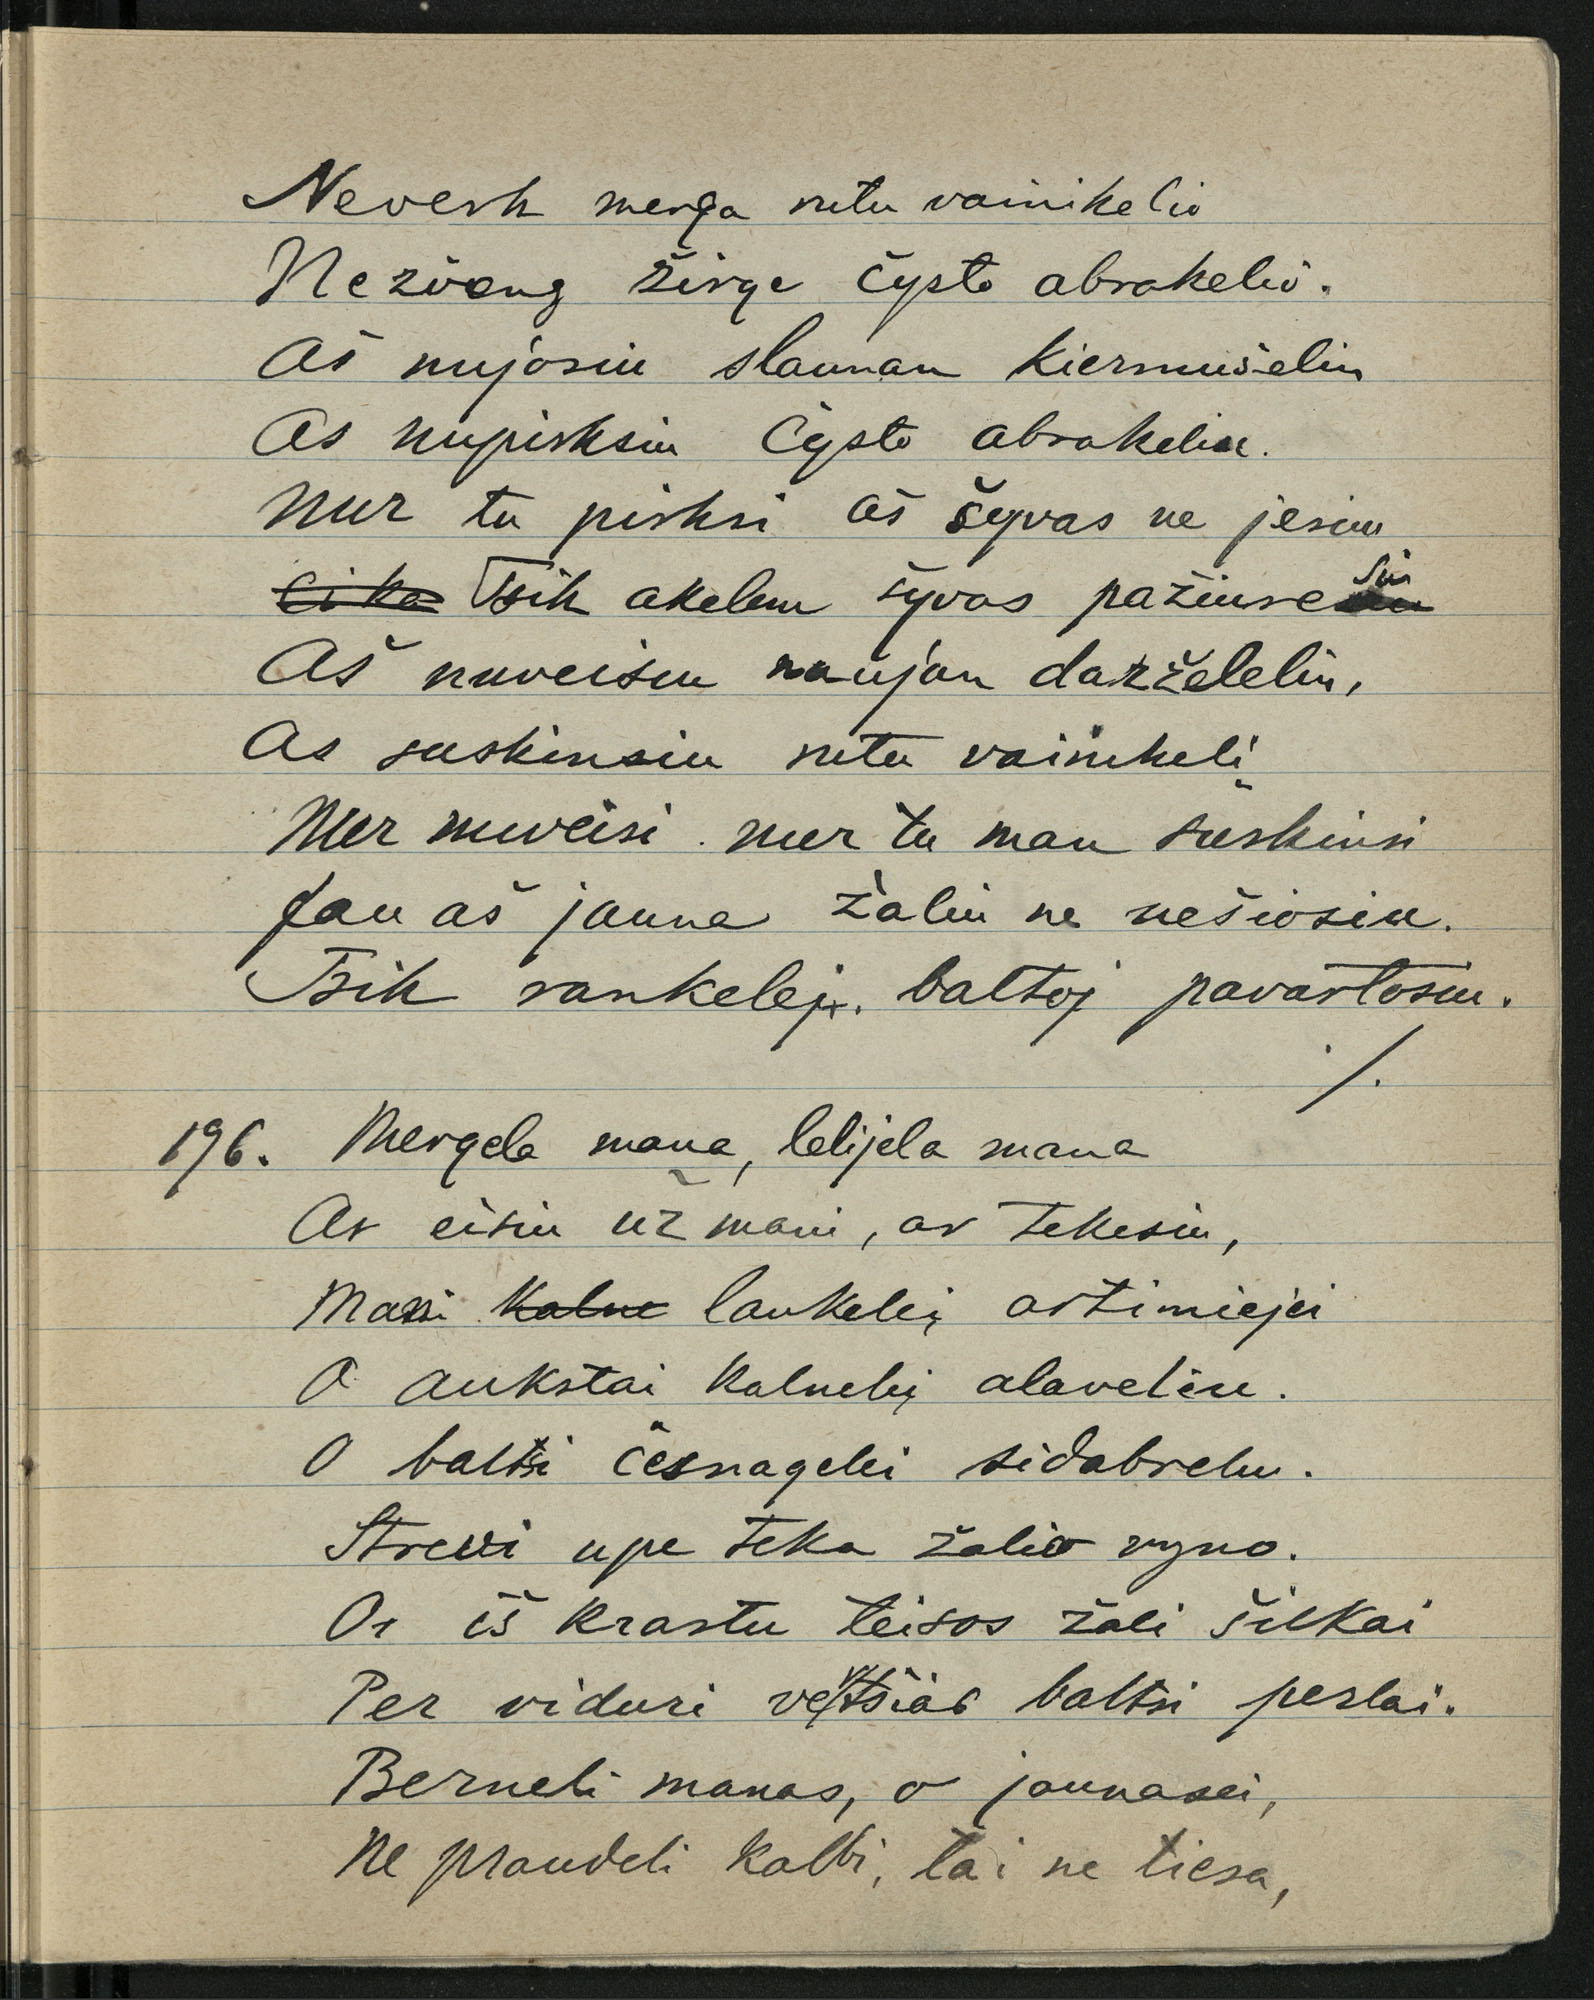 Neverk merga rutu vainikelio
Nezveng žirge čysto abrakelio.
Aš nujosiu slaunan kiermušeliu
As nupirksiu čysto abrakeliu.
Nur tu pirksi aš šyvas ne jesiu
Tsik akelem šyvas pažiuresiu
Aš nuveisiu naujan darželeliu,
As suskinsiu rutu vainikeli
Nur nuveisi nur tu man suskinsi
Jau aš jauna žaliu ne nešiosiu.
Tsik rankelej. baltoj pavartosiu.
./.
196. Mergela mana, lelijela mana
Ar eisiu už mani, ar tekesiu,
Mani laukelei artimiejei
O aukstai kalnelei alaveliu.
O baltsi česnagelei sidabrelu.
Strevi upe teka žalio vyno.
Or iš krastu teisos žali šilkai
Per viduri vertsias baltsi perlai.
Berneli manas, o jaunasei,
Ne praudeli kalbi, tai ne tiesa,